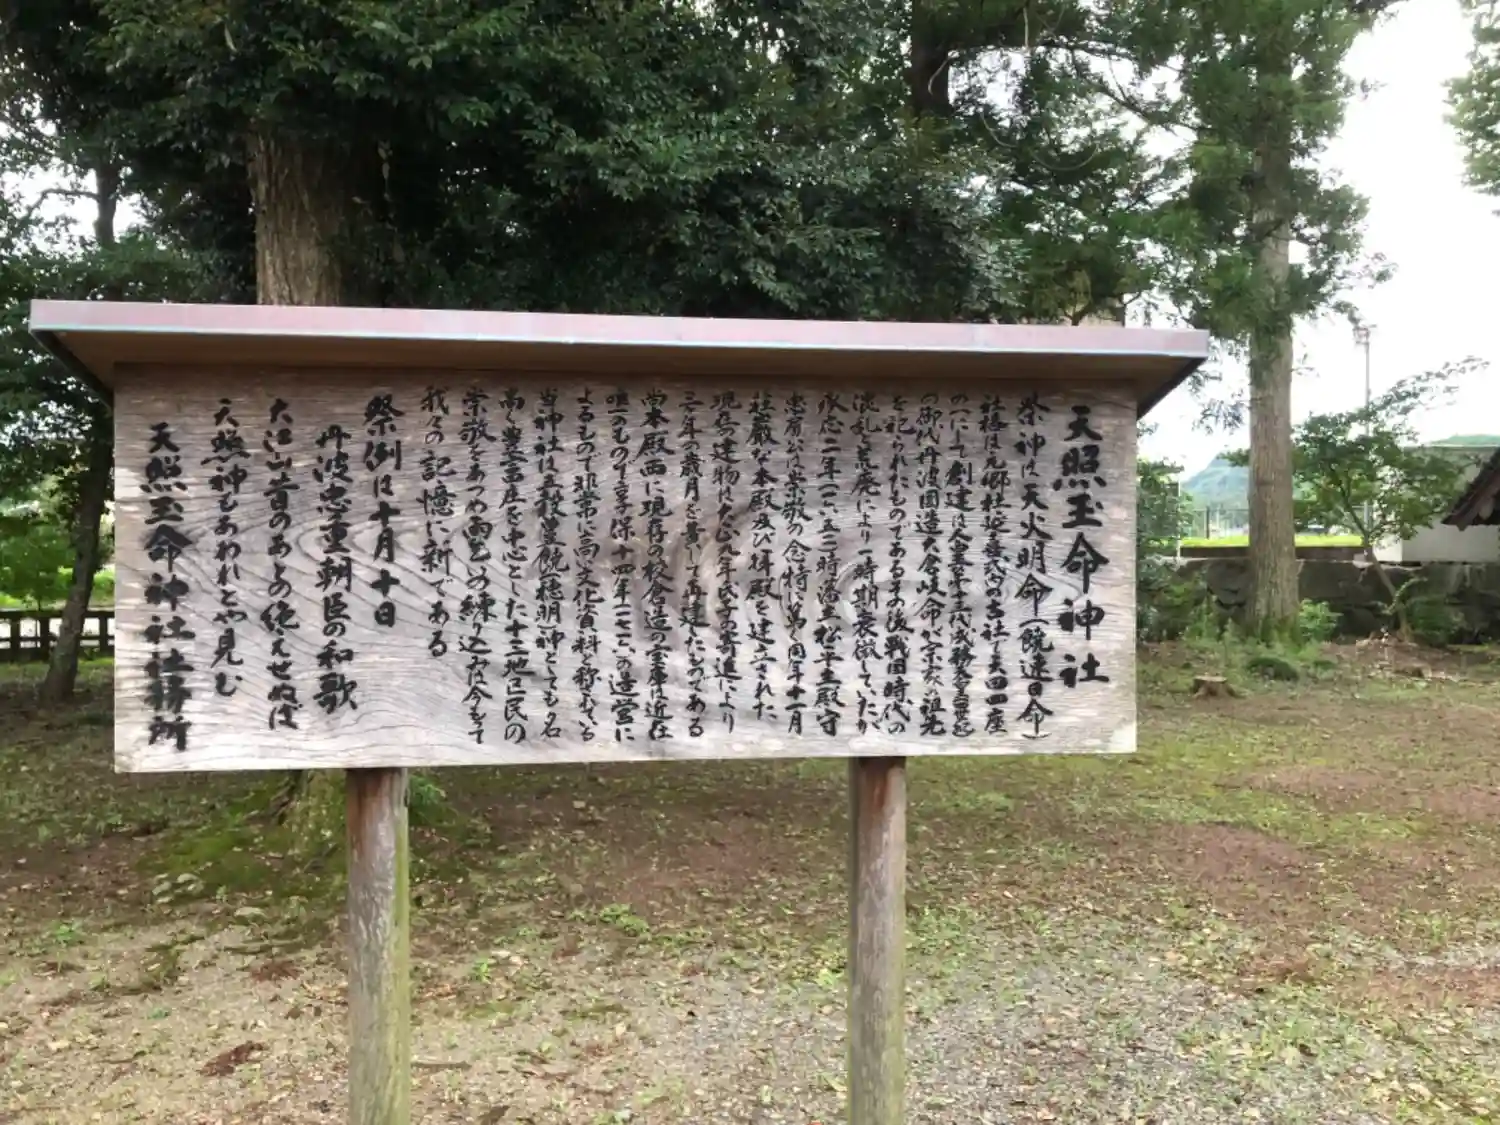 天照玉命神社
祭神は天火明命(饒速日命)
社格は元郷社延喜式内の古社で天田四座
の一にして創建は人皇第十三代成務天皇の世紀
の御代丹波国造大倉岐命が宗家の祖先
を祀られたものであるその後戦国時代の
混乱と荒廃により一時期衰微していたが
承応二年(一六五三)時藩主松平主殿守
忠房公は崇敬の念特に篤く同年十一月
荘厳な本殿及び拝殿を建立された
現乌建物は大正九年氏子の寄進により
三ヶ年の歳月を費して再建したものである
尚本殿西に現存の校倉造の宝庫は近在
唯一のもので享保十四年(一七二九)の造営に
よるもので非常に高い文化資料と称されている
当神社は五穀豊饒の聡明神としても名
高く豊富庄を中心とした十三地区民の
崇敬をあつめ雨乞の練り込みは今もって
我々の記憶に新である
祭例は十月十日
丹波忠重朝臣の和歌
大江山昔のあとの絶えせぬは
天照神もあわれとや見む
天照玉命神社社務所